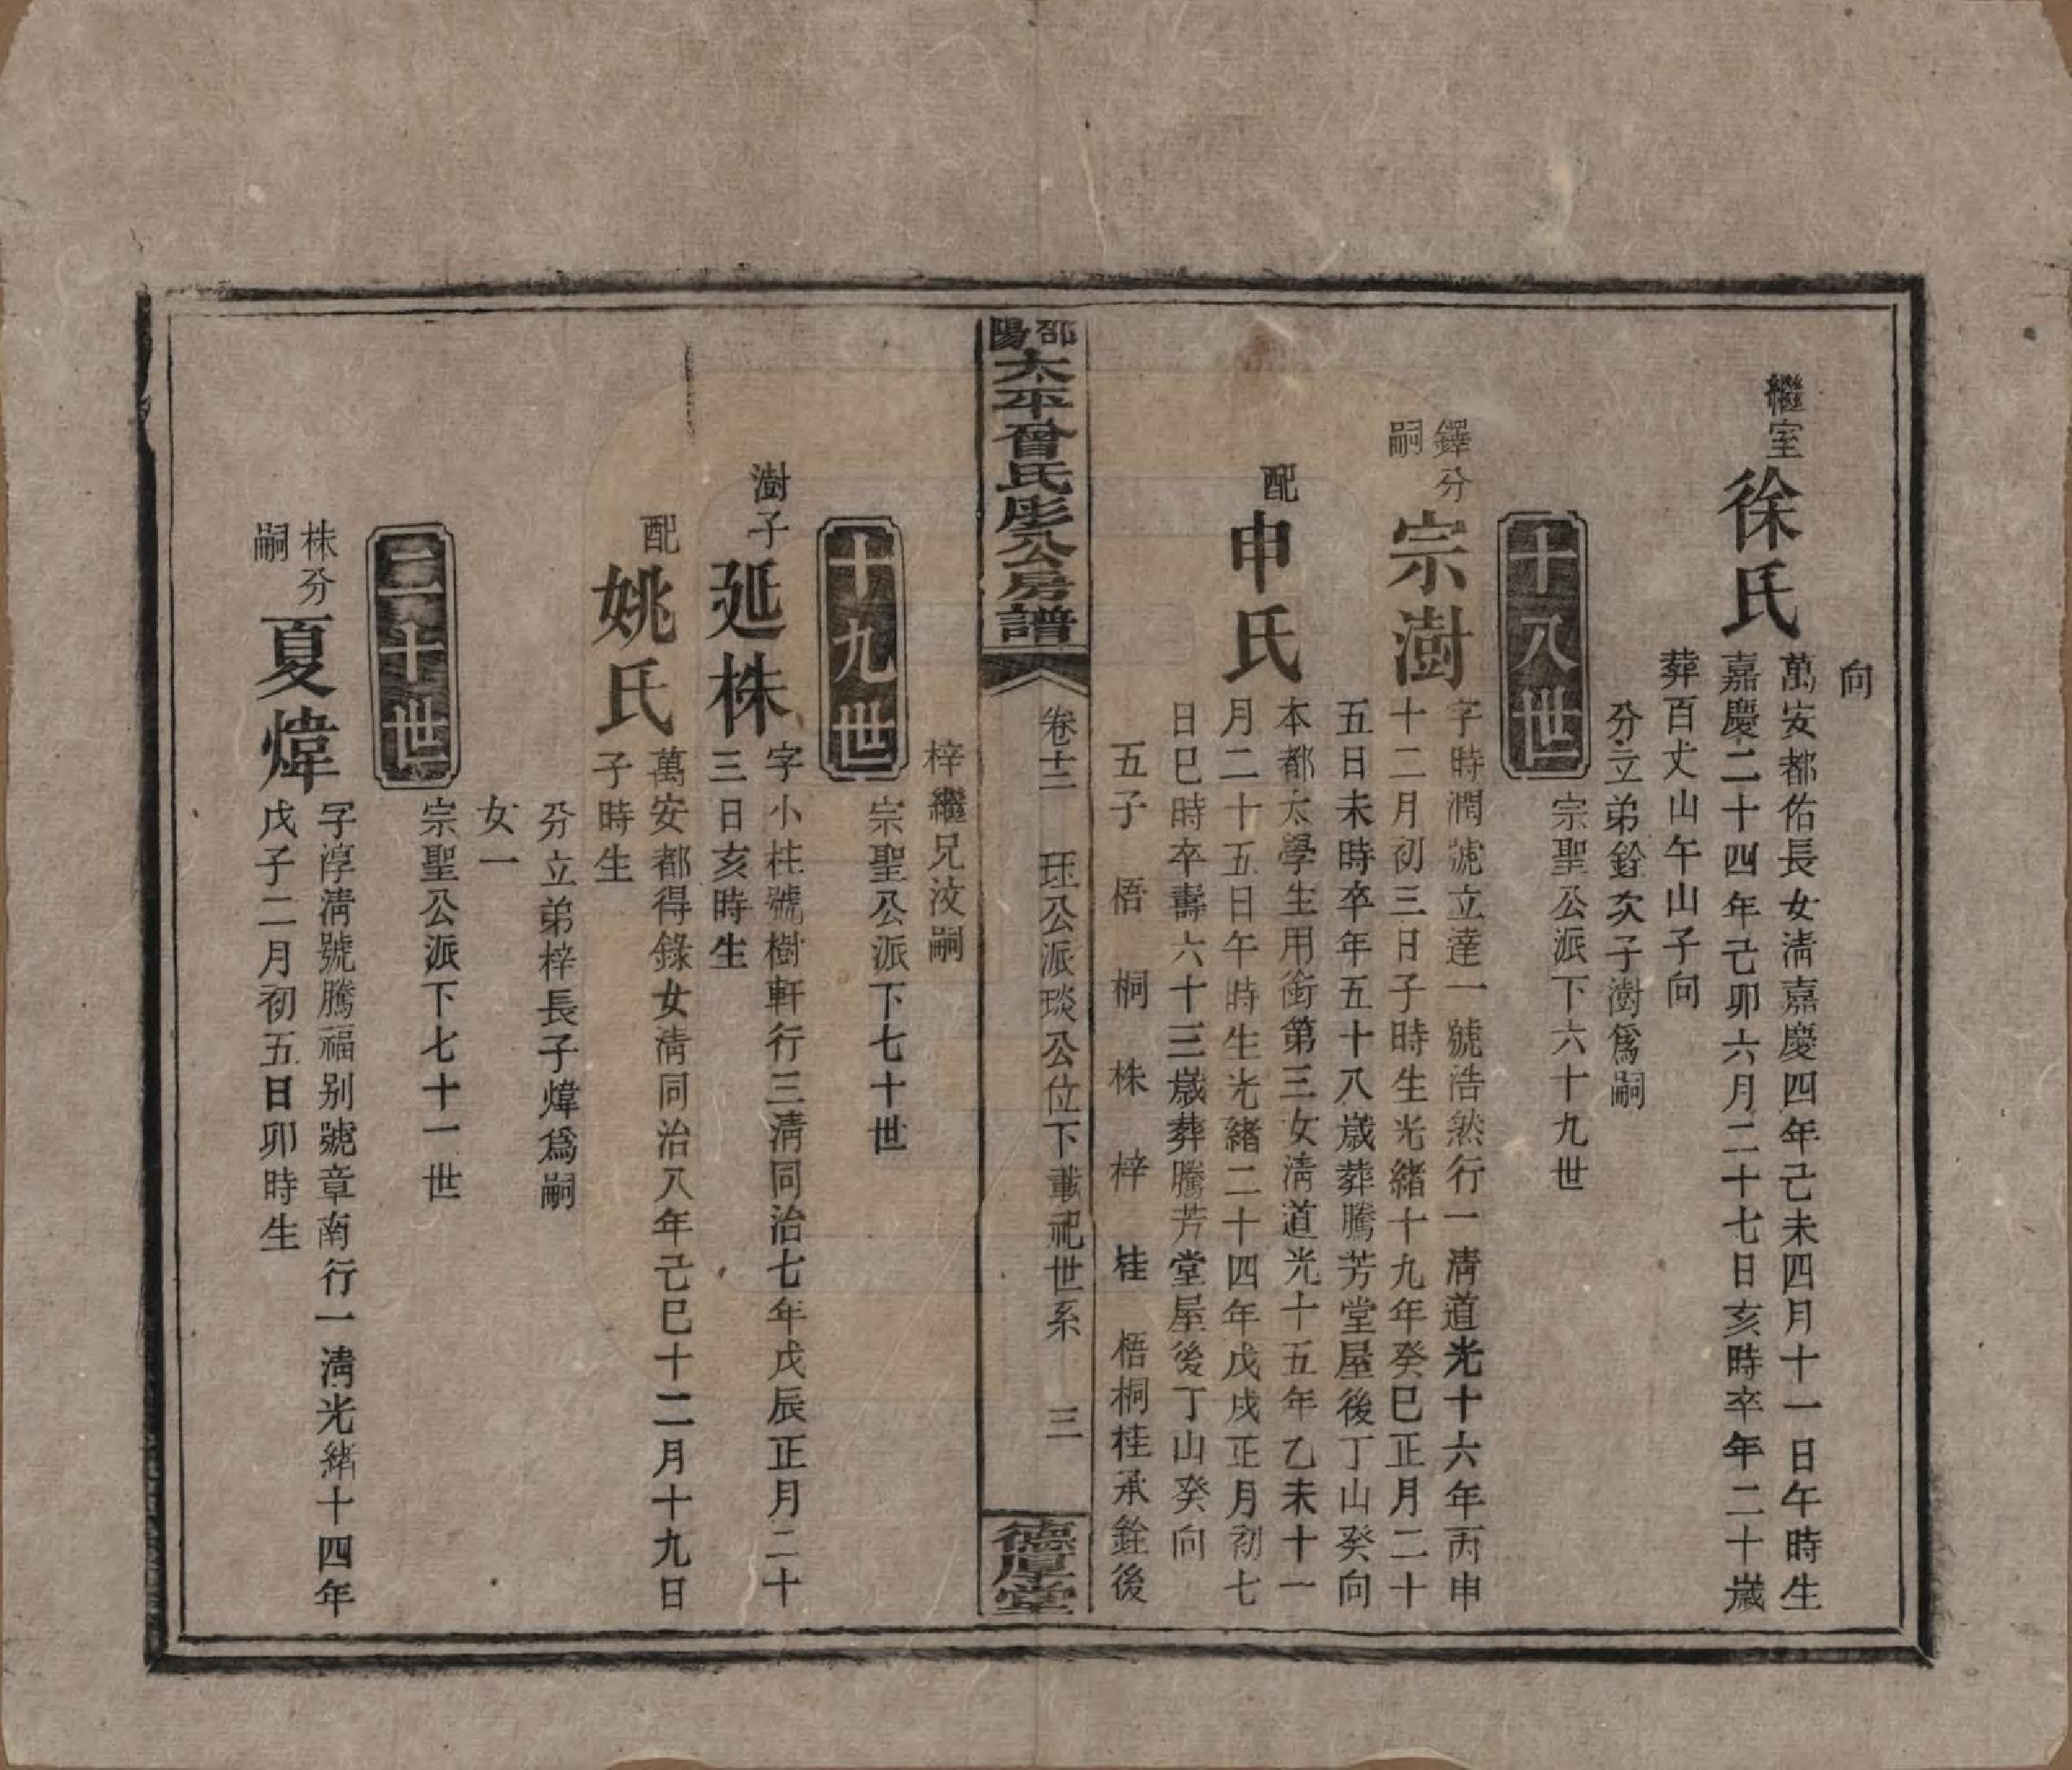 向
繼室
徐氏
萬安都佑長女淸嘉慶四年己未四月十一日午時生
嘉慶二十四年己卯六月二十七日亥時卒年二十歲
葬百丈山午山子向
分立弟銓次子澍爲嗣
十八世
宗聖公派下六十九世
鐸分
嗣
宗澍
字時潤號立達一號浩然行一淸道光十六年丙申
十二月初三日子時生光緒十九年癸巳正月二十
五日未時卒年五十八歲葬騰芳堂屋後丁山癸向
配
申氏
本都太學生用銜第三女淸道光十五年乙未十一
月二十五日午時生光緒二十四年戊戌正月初七
日巳時卒壽六十三歲葬騰芳堂屋後丁山癸向
五子 梧 桐 株 梓 桂 梧桐桂承銓後
邵陽
太平曾氏彪公房譜
卷十二 珏公派琰公位下載祀世系 三
德厚堂
梓繼兄汥嗣
十九世
宗聖公派下七十世
澍子
延株
字小柱號樹軒行三淸同治七年戊辰正月二十
三日亥時生
配
姚氏
萬安都得錄女淸同治八年己巳十二月十九日
子時生
分立弟梓長子煒爲嗣
女一
二十世
宗聖公派下七十一世
株分
嗣
夏煒
字淳淸號騰福別號章南行一淸光緒十四年
戊子二月初五日卯時生